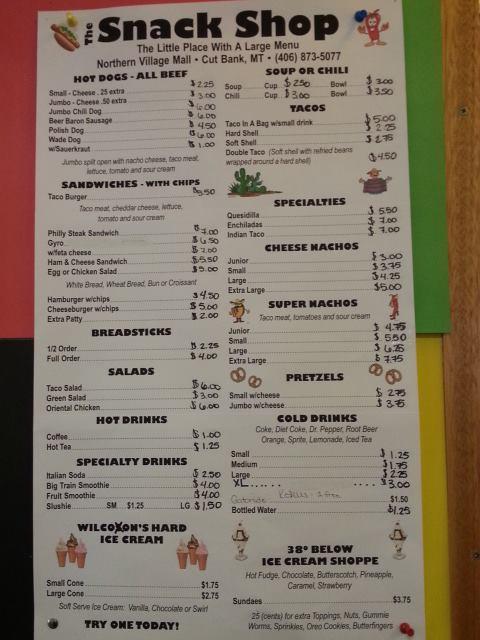 The Snack Shop
The Little Place With A Large Menu
Northern Village Mall • Cut Bank, MT • (406) 873-5077
HOT DOGS - ALL BEEF
Small - Cheese .25 extra $2.25
Jumbo - Cheese .50 extra $3.00
Jumbo Chili Dog $6.00
Beer Baron Sausage $6.00
Polish Dog $4.50
Wade Dog $6.00
w/Sauerkraut $1.00
Jumbo split open with nacho cheese, taco meat,
lettuce, tomato and sour cream
SANDWICHES - WITH CHIPS
Taco Burger $5.50
Taco meat, cheddar cheese, lettuce,
tomato and sour cream
Philly Steak Sandwich $7.00
Gyro $6.50
w/feta cheese $7.00
Ham & Cheese Sandwich $5.50
Egg or Chicken Salad $5.00
White Bread, Wheat Bread, Bun or Croissant
Hamburger w/chips $4.50
Cheeseburger w/chips $5.00
Extra Patty $2.00
BREADSTICKS
1/2 Order $2.25
Full Order $4.00
SALADS
Taco Salad $6.00
Green Salad $3.00
Oriental Chicken $6.00
HOT DRINKS
Coffee $1.00
Hot Tea $1.25
SPECIALTY DRINKS
Italian Soda $2.50
Big Train Smoothie $4.00
Fruit Smoothie $4.00
Slushie SM $1.25 LG $1.50
WILCOXON'S HARD
ICE CREAM
Small Cone $1.75
Large Cone $2.75
Soft Serve Ice Cream: Vanilla, Chocolate or Swirl
TRY ONE TODAY!
SOUP OR CHILI
Soup Cup $2.50 Bowl $3.00
Chili Cup $3.00 Bowl $3.50
TACOS
Taco In A Bag w/small drink $5.00
Hard Shell $2.25
Soft Shell $2.75
Double Taco (Soft shell with refried beans
wrapped around a hard shell) $4.50
SPECIALTIES
Quesidilla $5.50
Enchiladas $7.00
Indian Taco $7.00
CHEESE NACHOS
Junior $3.00
Small $3.75
Large $4.25
Extra Large $5.00
SUPER NACHOS
Taco meat, tomatoes and sour cream
Junior $4.75
Small $5.50
Large $6.25
Extra Large $7.75
PRETZELS
Small w/cheese $2.75
Jumbo w/cheese $3.75
COLD DRINKS
Coke, Diet Coke, Dr. Pepper, Root Beer
Orange, Sprite, Lemonade, Iced Tea
Small $1.25
Medium $1.75
Large $2.25
XL $3.00
Gatorade $1.50
Bottled Water $1.25
38° BELOW
ICE CREAM SHOPPE
Hot Fudge, Chocolate, Butterscotch, Pineapple,
Caramel, Strawberry
Sundaes $3.75
25 (cents) for extra Toppings, Nuts, Gummie
Worms, Sprinkles, Oreo Cookies, Butterfingers